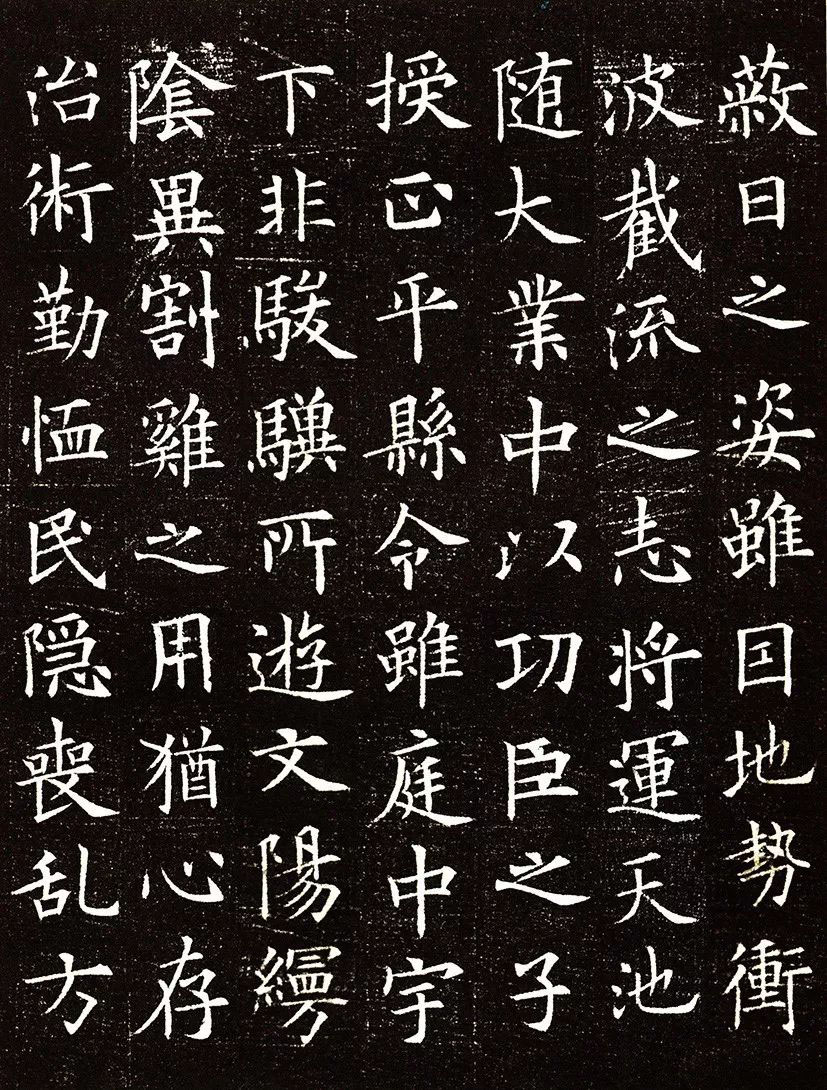 蔽日之姿雖囙地勢衝
波截流之志將運天池
随大業中以功臣之子
授正平縣令雖庭中宇
下非駿驥所遊文陽縵
陰異割雞之用猶心存
治術勤恤民隠喪乱方